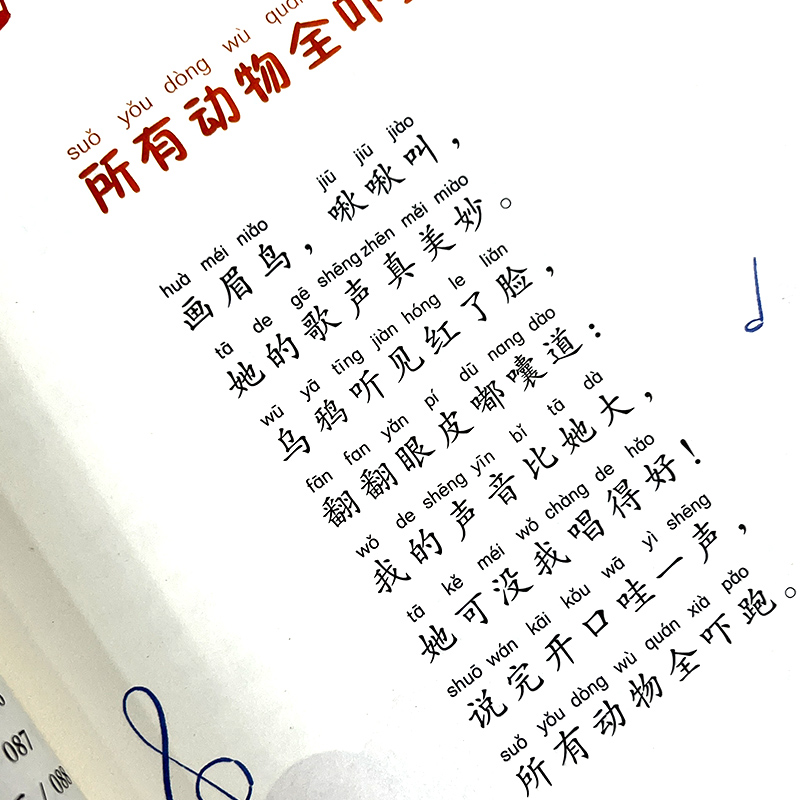 suǒ yǒu dòng wù quán
所有动物全吓
jiū jiū jiào
huà méi niǎo
画眉鸟，啾啾叫，
tā de gē shēng zhēn měi miào
她的歌声真美妙。
wū yā tīng jiàn hóng le liǎn
乌鸦听见红了脸，
fān fan yǎn pí dū nang dào
翻翻眼皮嘟囔道：
wǒ de shēng yīn bǐ tā dà
我的声音比她大，
tā kě méi wǒ chàng de hǎo
她可没我唱得好！
shuō wán kāi kǒu wā yì shēng
说完开口哇一声，
suǒ yǒu dòng wù quán xià pǎo
所有动物全吓跑。
087
/ 088